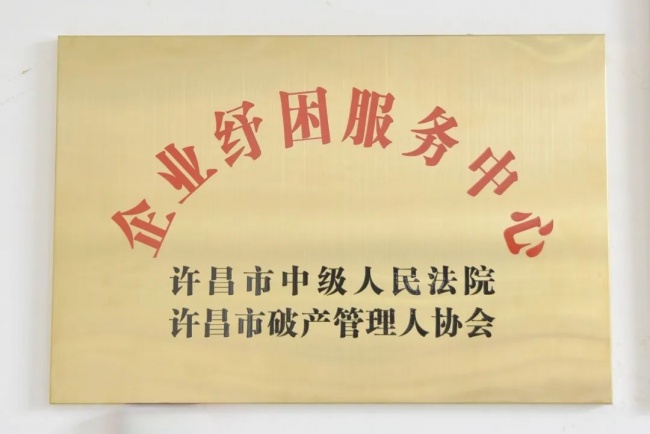 企业纾困服务中心
许昌市中级人民法院
许昌市破产管理人协会